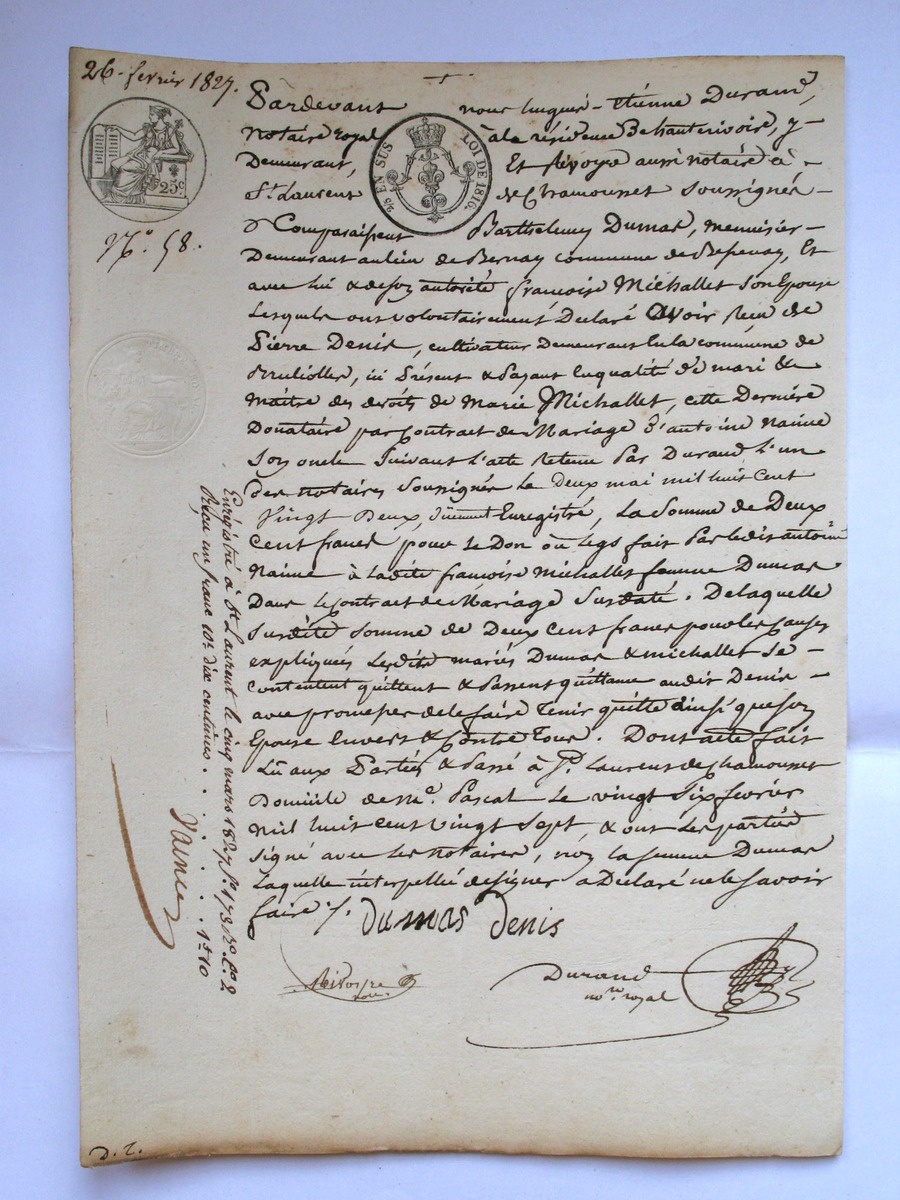 26. fevrier 1827.
Pardevant nous hugues-etienne Durand,
Notaire Royal à la residence De hauterivoire, y-
Demeurant, Et Rivoyre aussi notaire à -
St. Laurent de Chamousset soussignés -
25c
EN SUS
LOI DE 1816.
N.o 58.
Comparaissent Barthelemy Dumas, menuisier-
Demeurant au lieu de Bernay commune de , Et
avec lui & de soy autorité francoise Michallet son Epouse
Lesquels ont volontairement Declaré avoir Recu de
Pierre Denis, cultivateur Demeurant la commune de
Brulioles, ici Présent & Payant en qualité de mari &
maitre des droits de Marie Michallet, cette Derniere
Donataire par Contract de Mariage d'antoine Naime
Soy oncle Suivant l'acte Retenu Par Durand l'un
des notaires Soussignés Le Deux mai mil huit Cent
Vingt Deux, duement Enregistré, La Somme de Deux
Cent francs pour Le Don ou Legs fait Par Ledit antoine
Naime à Ladite francoise Michallet femme Dumas
Dans Le Contract de Mariage Susdaté. De laquelle
Susdite Somme de Deux Cent francs pour les Causes
expliquées Lesdits mariés Dumas & michallet Se -
Contentent quittent & Passent quittance audit Denis -
avec promesses de le faire Tenir quitte ainsi que soy
Epouse Envers & Contre Tous. Dont acte fait
Lû aux Parties & Passé à St. Laurent de Chamousset
Domicile de Me. Pascal Le vingt Six fevrier
Mil huit Cent Vingt Sept, & ont les parties
Signé avec Les Notaires, noy la femme Dumas
Laquelle interpellée de signer a Declaré ne le Savoir
faire ./.
Dumas Denis
Rivoyre
Durand
no.re royal
Enrégistré à St Laurent le cinq mars 1827. fo. 173 Ro. Ca. 2
Reçu un franc et dix centimes . . . . . 1f 10
D. T.